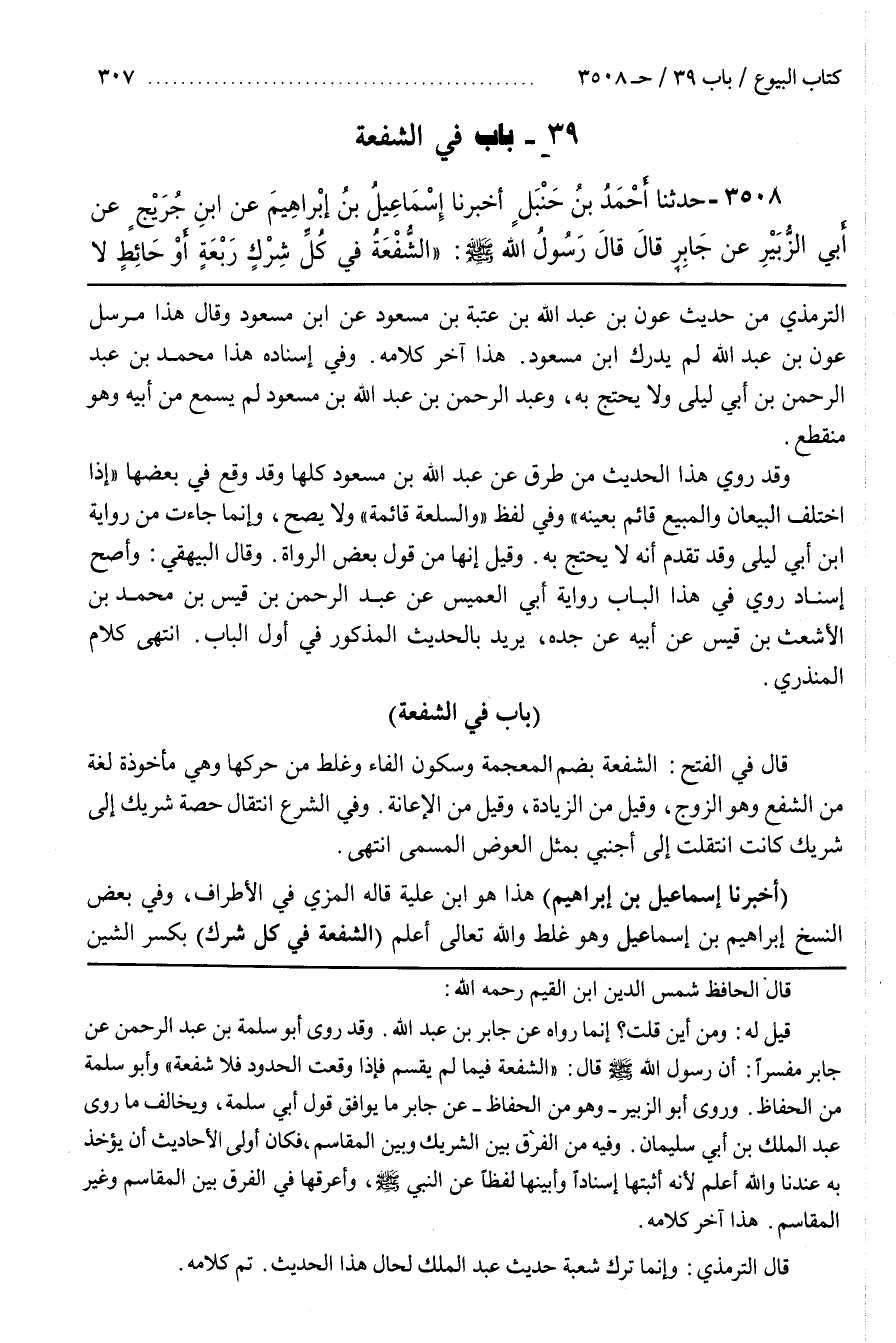 كتاب البيوع / باب ٣٩ / حـ ٣٥٠٨ ............................................... ٣٠٧
٣٩ - باب في الشفعة
٣٥٠٨ - حدثنا أَحْمَدُ بنُ حَنْبَلٍ أخبرنا إِسْمَاعِيلُ بنُ إِبْراهِيمَ عن ابنِ جُرَيْجٍ عن
أَبي الزُّبَيْرِ عن جَابِرٍ قالَ قالَ رَسُولُ الله ﷺ: «الشُّفْعَةُ في كُلِّ شِرْكٍ رَبْعَةٍ أَوْ حَائِطٍ لا
الترمذي من حديث عون بن عبد الله بن عتبة بن مسعود عن ابن مسعود وقال هذا مرسل
عون بن عبد الله لم يدرك ابن مسعود. هذا آخر كلامه. وفي إسناده هذا محمد بن عبد
الرحمن بن أبي ليلى ولا يحتج به، وعبد الرحمن بن عبد الله بن مسعود لم يسمع من أبيه وهو
منقطع.
وقد روي هذا الحديث من طرق عن عبد الله بن مسعود كلها وقد وقع في بعضها «إذا
اختلف البيعان والمبيع قائم بعينه» وفي لفظ «والسلعة قائمة» ولا يصح، وإنما جاءت من رواية
ابن أبي ليلى وقد تقدم أنه لا يحتج به. وقيل إنها من قول بعض الرواة. وقال البيهقي: وأصح
إسناد روي في هذا الباب رواية أبي العميس عن عبد الرحمن بن قيس بن محمد بن
الأشعث بن قيس عن أبيه عن جده، يريد بالحديث المذكور في أول الباب. انتهى كلام
المنذري.
(باب في الشفعة)
قال في الفتح: الشفعة بضم المعجمة وسكون الفاء وغلط من حركها وهي مأخوذة لغة
من الشفع وهو الزوج، وقيل من الزيادة، وقيل من الإعانة. وفي الشرع انتقال حصة شريك إلى
شريك كانت انتقلت إلى أجنبي بمثل العوض المسمى انتهى.
(أخبرنا إسماعيل بن إبراهيم) هذا هو ابن علية قاله المزي في الأطراف، وفي بعض
النسخ إبراهيم بن إسماعيل وهو غلط والله تعالى أعلم (الشفعة في كل شرك) بكسر الشين
قال الحافظ شمس الدين ابن القيم رحمه الله:
قيل له: ومن أين قلت؟ إنما رواه عن جابر بن عبد الله. وقد روى أبو سلمة بن عبد الرحمن عن
جابر مفسراً: أن رسول الله ﷺ قال: «الشفعة فيما لم يقسم فإذا وقعت الحدود فلا شفعة» وأبو سلمة
من الحفاظ. وروى أبو الزبير - وهو من الحفاظ - عن جابر ما يوافق قول أبي سلمة، ويخالف ما روى
عبد الملك بن أبي سليمان. وفيه من الفرق بين الشريك وبين المقاسم، فكان أولى الأحاديث أن يؤخذ
به عندنا والله أعلم لأنه أثبتها إسناداً وأبينها لفظاً عن النبي ﷺ، وأعرقها في الفرق بين المقاسم وغير
المقاسم. هذا آخر كلامه.
قال الترمذي: وإنما ترك شعبة حديث عبد الملك لحال هذا الحديث. تم كلامه.